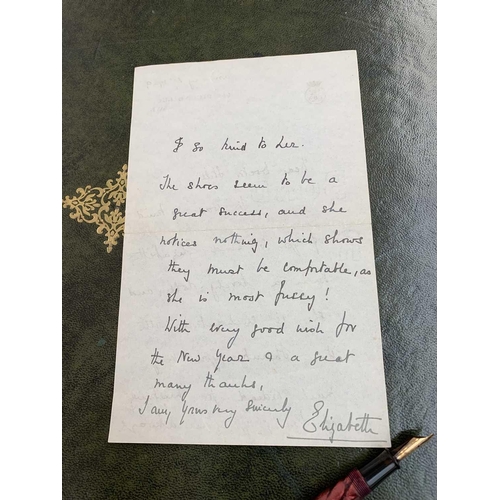 & so kind to her.
The shoes seem to be a
great success, and she
notices nothing, which shows
they must be comfortable, as
she is most fussy!
With every good wish for
the New Year & a great
many thanks,
I am, yours very sincerely Elizabeth